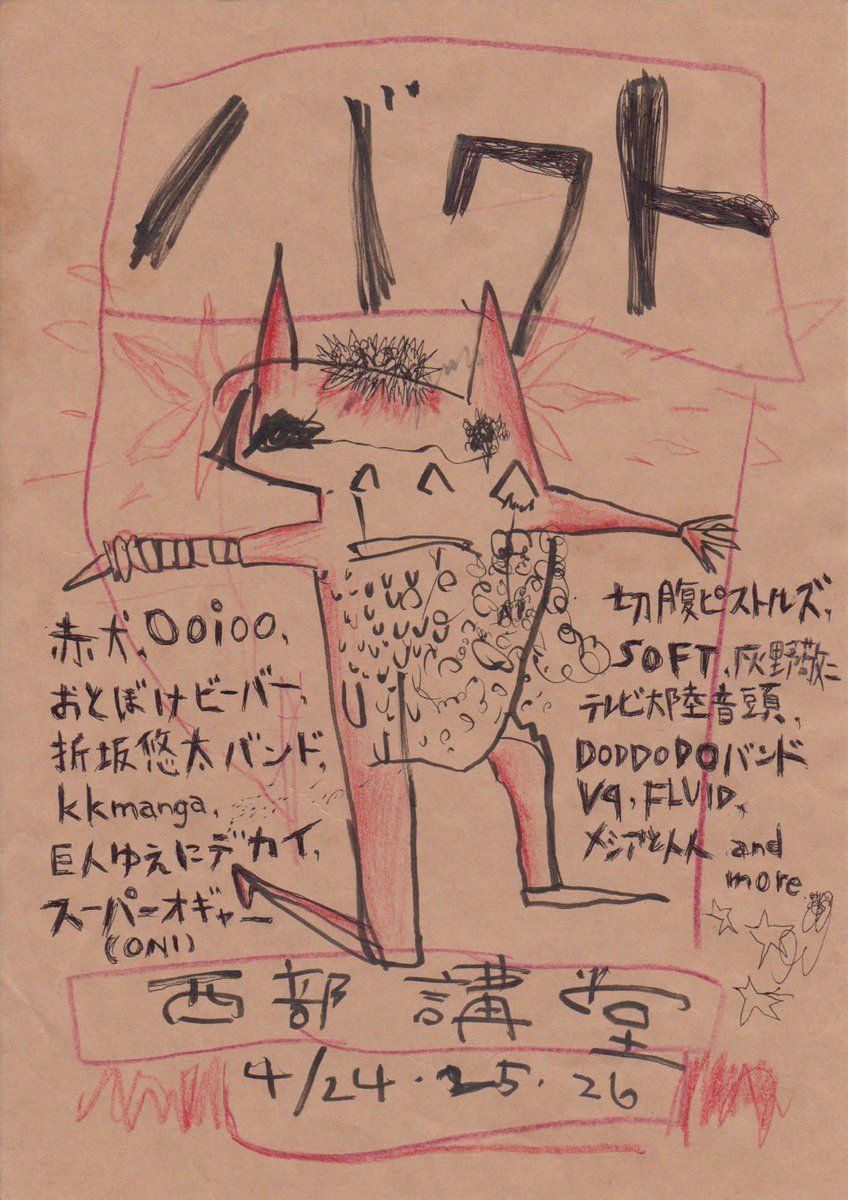 バクト
赤犬、OOiOO、
おとぼけビ〜バ〜、
折坂悠太バンド、
kkmanga、
巨人ゆえにデカイ、
スーパーオギャー
(ONI)
切腹ピストルズ、
SOFT、灰野敬二
テレビ大陸音頭、
DODDODOバンド
Vq, FLUID,
メシアと人人 and
more
西部講堂
4/24・25・26